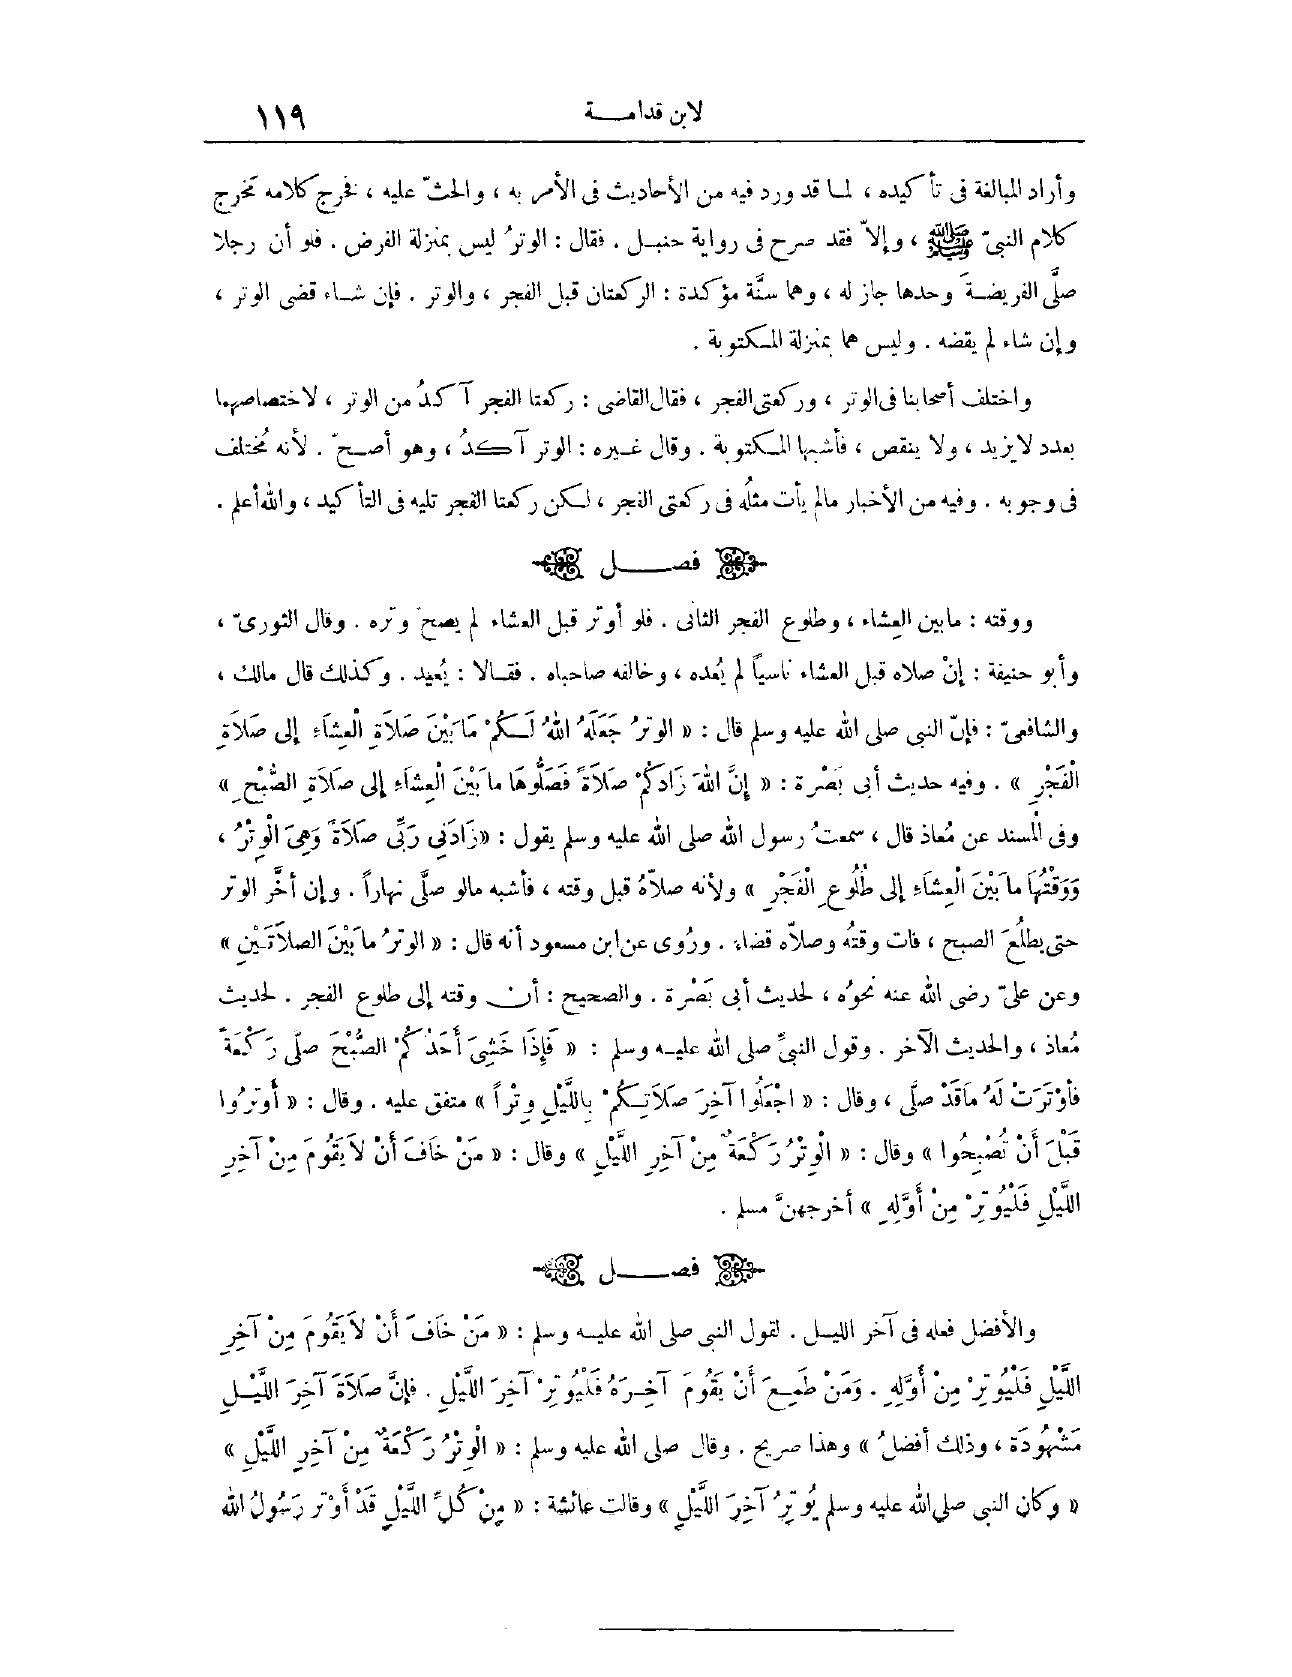 لابن قدامـــة ١١٩
وأراد المبالغة فى تأكيده ، لما قد ورد فيه من الأحاديث فى الأمر به ، والحثّ عليه ، فخرج كلامه مَخرج
كلام النبىّ ﷺ ، وإلاّ فقد صرح فى رواية حنبل . فقال : الوترُ ليس بمنزلة الفرض . فلو أن رجلا
صلَّى الفريضةَ وحدها جاز له ، وهما سنَّة مؤكدة : الركعتان قبل الفجر ، والوتر . فإن شاء قضى الوتر ،
وإن شاء لم يقضه . وليس هما بمنزلة المكتوبة .
واختلف أصحابنا فى الوتر ، وركعتى الفجر ، فقال القاضى : ركعتا الفجر آكدُ من الوتر ، لاختصاصهما
بعدد لا يزيد ، ولا ينقص ، فأشبها المكتوبة . وقال غيره : الوتر آكدُ ، وهو أصحّ . لأنه مُختلف
فى وجوبه . وفيه من الأخبار مالم يأت مثلُه فى ركعتى الفجر ، لكن ركعتا الفجر تليه فى التأكيد ، والله أعلم .
فصــــل
ووقته : مابين العِشاء ، وطلوع الفجر الثانى . فلو أوتر قبل العشاء لم يصحّ وتره . وقال الثورىّ ،
وأبو حنيفة : إنْ صلاه قبل العشاء ناسياً لم يُعده ، وخالفه صاحباه . فقالا : يُعيد . وكذلك قال مالك ،
والشافعىّ : فإنّ النبى صلى الله عليه وسلم قال : « الوترُ جَعَلَهُ اللهُ لَكُمْ مَا بَيْنَ صَلاَةِ الْعِشَاءِ إلى صَلاَةِ
الْفَجْرِ » . وفيه حديث أبى بَصْرة : « إنَّ اللهَ زَادَكُمْ صَلاَةً فَصَلُّوهَا مابَيْنَ الْعِشَاءِ إلى صَلاَةِ الصُّبْحِ »
وفى الْمسند عن مُعاذ قال ، سمعتُ رسول الله صلى الله عليه وسلم يقول : «زَادَنِي رَبِّى صَلاَةً وَهِىَ الْوِتْرُ ،
وَوَقْتُهَا مابَيْنَ الْعِشَاءِ إلى طُلُوعِ الْفَجْرِ » ولأنه صلاّهُ قبل وقته ، فأشبه مالو صلَّى نهاراً . وإن أخَّر الوتر
حتى يطلُعَ الصبح ، فات وقتُه وصلاّه قضاء . ورُوى عن ابن مسعود أنه قال : « الوترُ مابَيْنَ الصلاَتَيْنِ »
وعن علىّ رضى الله عنه نحوُه ، لحديث أبى بَصْرة . والصحيح : أن وقته إلى طلوع الفجر . لحديث
مُعاذ ، والحديث الآخر . وقول النبىّ صلى الله عليه وسلم : « فَإِذَا خَشِىَ أَحَدُكُمْ الصُّبْحَ صلّى رَكْعَةً
فأوْتَرَتْ لَهُ مَاقَدْ صلَّى ، وقال : « اجْعَلُوا آخِرَ صَلاَتِكُمْ بِاللَّيْلِ وِتْراً » متفق عليه . وقال : « أَوتِرُوا
قَبْلَ أَنْ تُصْبِحُوا » وقال : « الْوِتْرُ رَكْعَةٌ مِنْ آخِرِ اللَّيْلِ » وقال : « مَنْ خَافَ أَنْ لاَيَقُومَ مِنْ آخِرِ
اللَّيْلِ فَلْيُوتِرْ مِنْ أَوَّلِهِ » أخرجهنَّ مسلم .
فصــــل
والأفضل فعله فى آخر الليل . لقول النبى صلى الله عليه وسلم : « مَنْ خَافَ أَنْ لاَيَقُومَ مِنْ آخِرِ
اللَّيْلِ فَلْيُوتِرْ مِنْ أَوَّلِهِ . وَمَنْ طَمِعَ أَنْ يَقُومَ آخِرَهُ فَلْيُوتِرْ آخِرَ اللَّيْلِ . فَإنَّ صَلاَةَ آخِرَ اللَّيْلِ
مَشْهُودَة ، وذلك أفضلُ » وهذا صريح . وقال صلى الله عليه وسلم : « الْوِتْرُ رَكْعَةٌ مِنْ آخِرِ اللَّيْلِ »
« وكان النبى صلى الله عليه وسلم يُوتِرُ آخِرَ اللَّيْلِ » وقالت عائشة : « مِنْ كُلِّ اللَّيْلِ قَدْ أَوْتر رَسُولُ الله